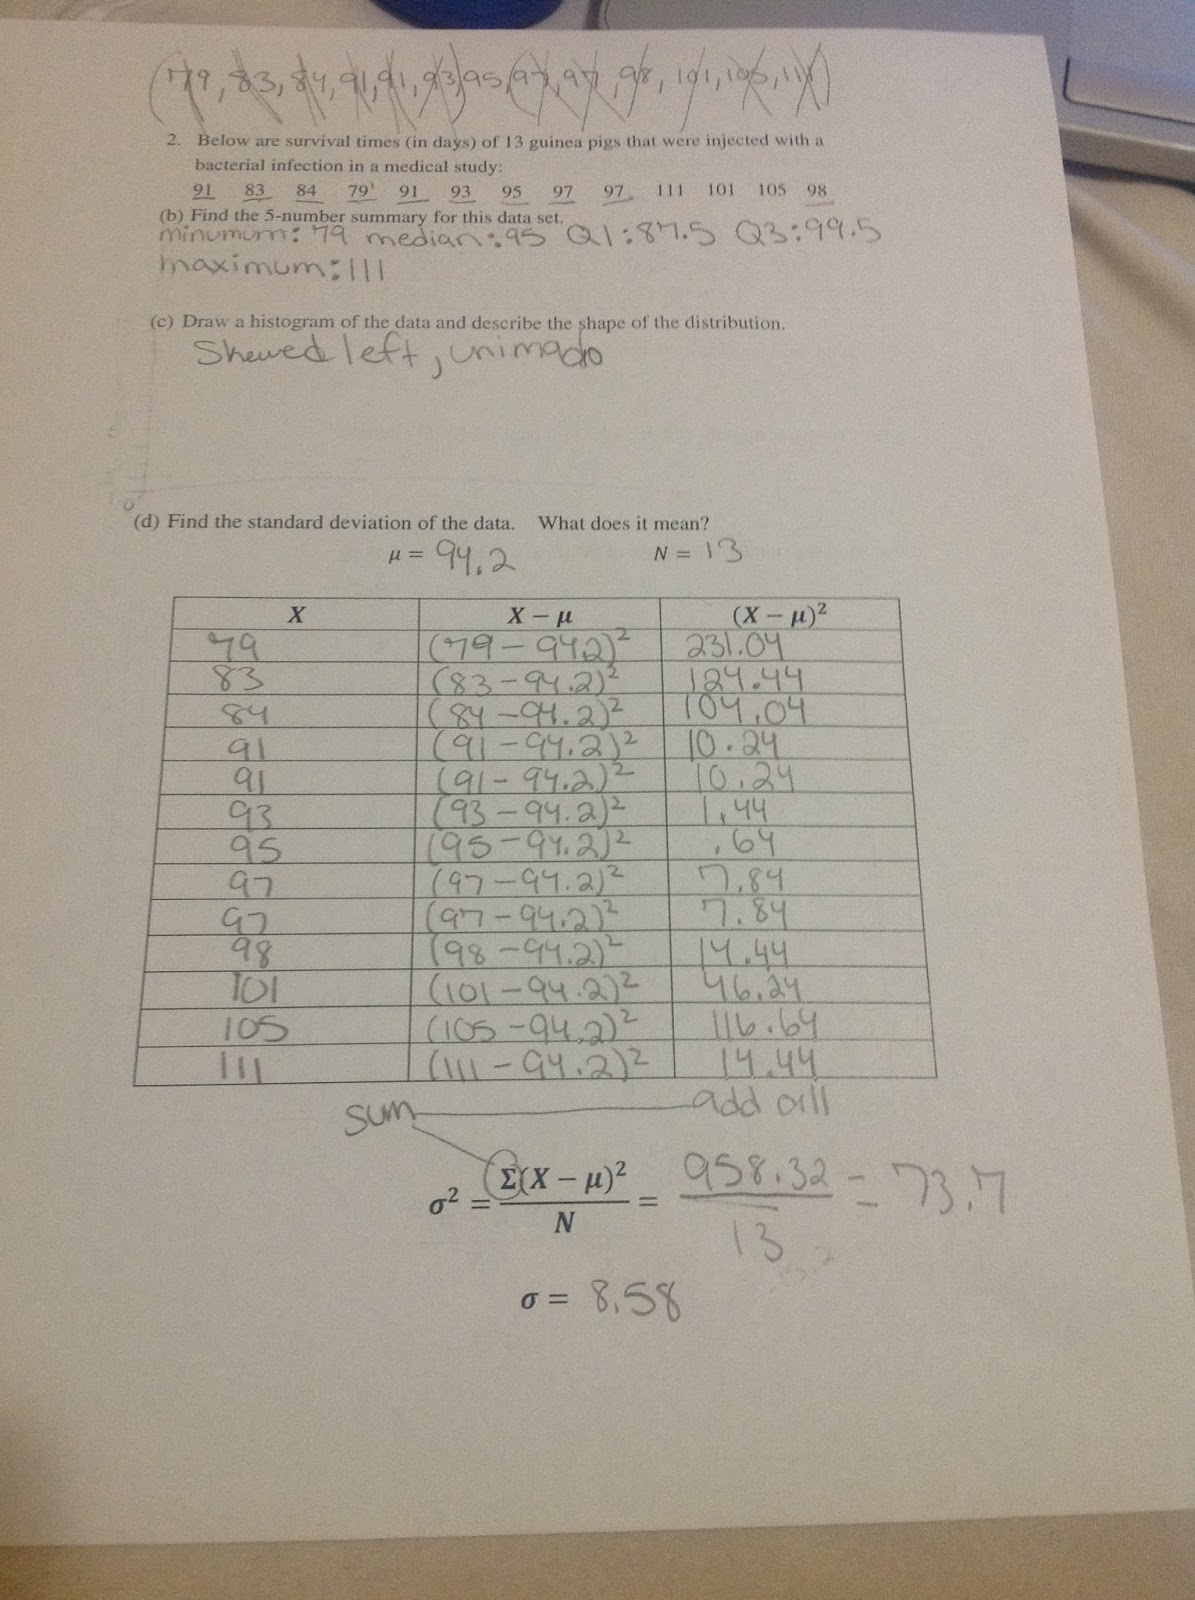 (79, 83, 84, 91, 91, 93) 95, (97, 97, 98, 101, 105, 111)
2. Below are survival times (in days) of 13 guinea pigs that were injected with a
bacterial infection in a medical study:
91 83 84 79 91 93 95 97 97 111 101 105 98
(b) Find the 5-number summary for this data set.
minumum: 79 median: 95 Q1: 87.5 Q3: 99.5
maximum: 111
(c) Draw a histogram of the data and describe the shape of the distribution.
Skewed left, unimado
(d) Find the standard deviation of the data. What does it mean?
μ = 94.2 N = 13
X X – μ (X – μ)²
79 (79 – 94.2)² 231.04
83 (83 – 94.2)² 124.44
84 (84 – 94.2)² 104.04
91 (91 – 94.2)² 10.24
91 (91 – 94.2)² 10.24
93 (93 – 94.2)² 1.44
95 (95 – 94.2)² .64
97 (97 – 94.2)² 7.84
97 (97 – 94.2)² 7.84
98 (98 – 94.2)² 14.44
101 (101 – 94.2)² 46.24
105 (105 – 94.2)² 116.64
111 (111 – 94.2)² 14.44
sum add all
σ² = Σ(X – μ)² / N = 958.32 / 13 = 73.7
σ = 8.58